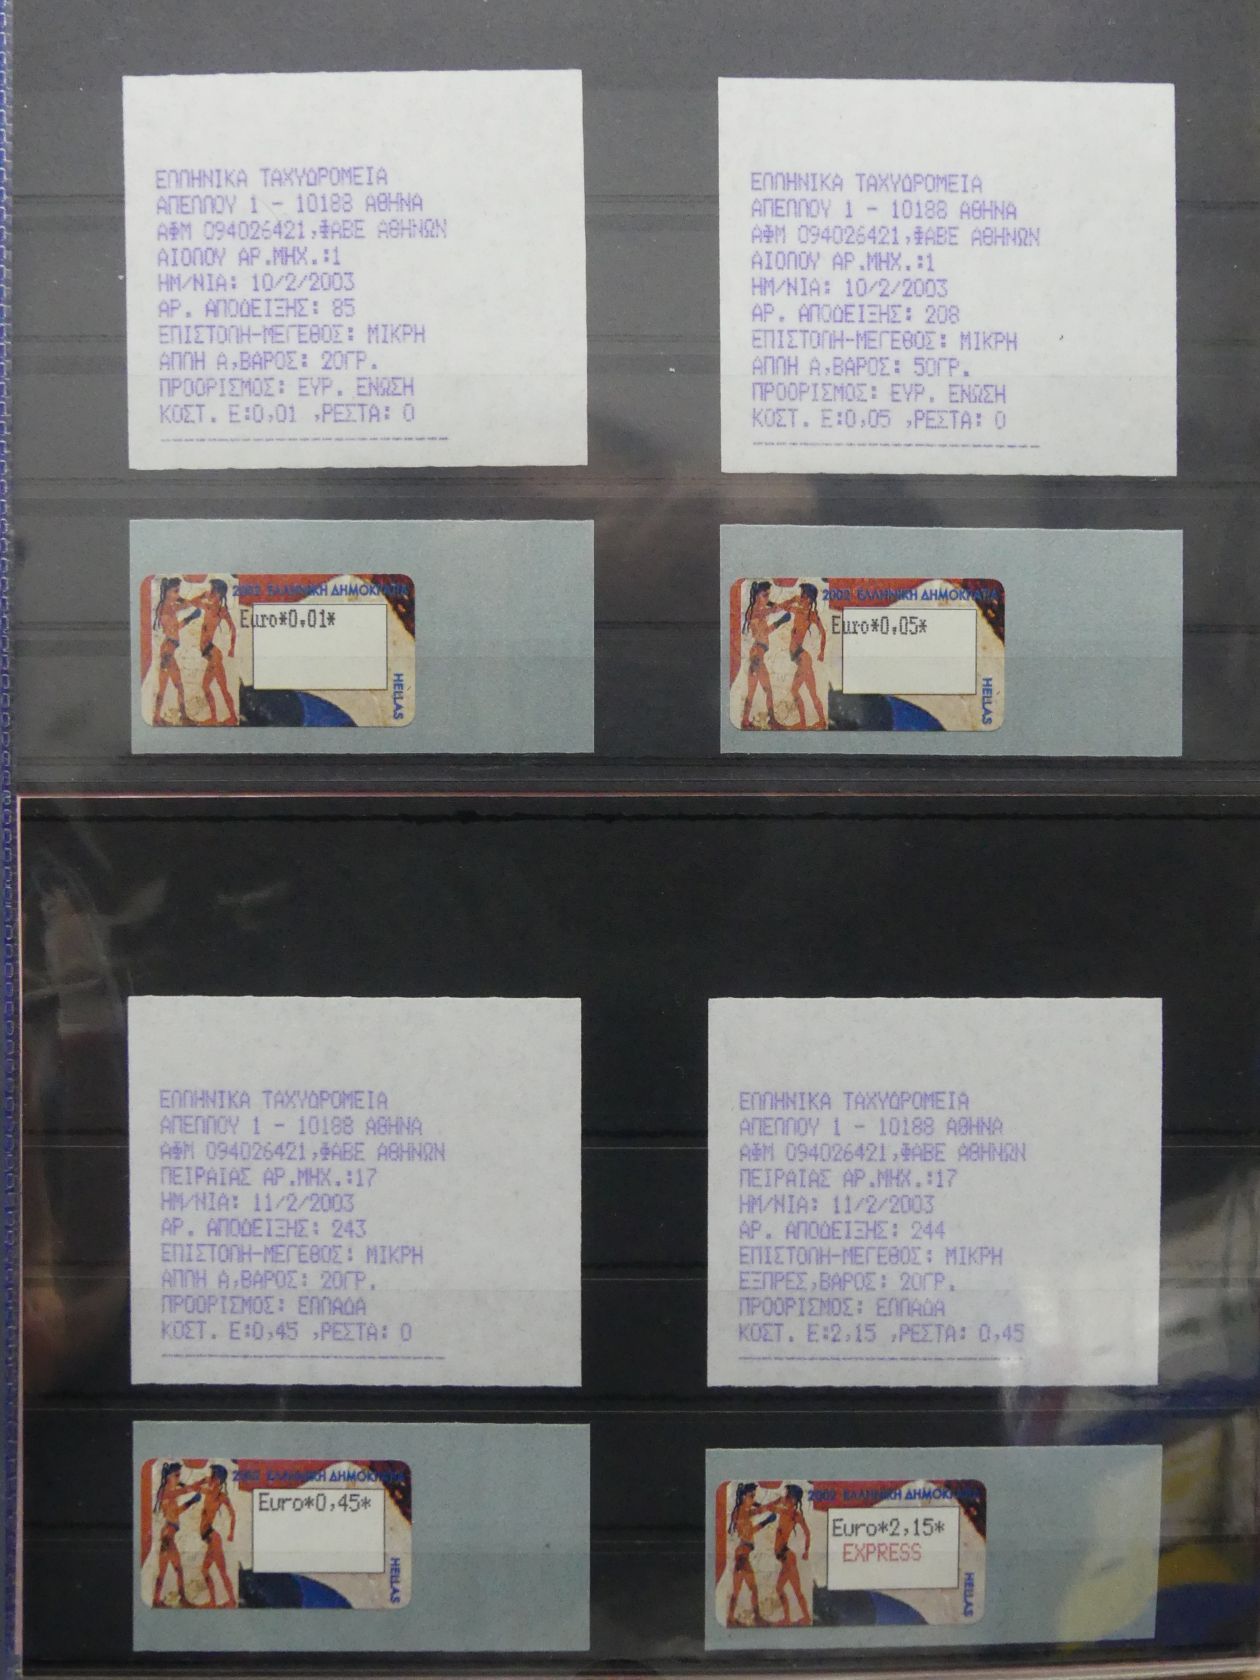 ΕΛΛΗΝΙΚΑ ΤΑΧΥΔΡΟΜΕΙΑ
ΑΠΕΛΛΟΥ 1 - 10188 ΑΘΗΝΑ
ΑΦΜ 094026421,ΦΑΒΕ ΑΘΗΝΩΝ
ΑΙΟΛΟΥ ΑΡ.ΜΗΧ.:1
ΗΜ/ΝΙΑ: 10/2/2003
ΑΡ. ΑΠΟΔΕΙΞΗΣ: 85
ΕΠΙΣΤΟΛΗ-ΜΕΓΕΘΟΣ: ΜΙΚΡΗ
ΑΠΛΗ Α,ΒΑΡΟΣ: 20ΓΡ.
ΠΡΟΟΡΙΣΜΟΣ: ΕΥΡ. ΕΝΩΣΗ
ΚΟΣΤ. Ε:0,01 ,ΡΕΣΤΑ: 0
ΕΛΛΗΝΙΚΑ ΤΑΧΥΔΡΟΜΕΙΑ
ΑΠΕΛΛΟΥ 1 - 10188 ΑΘΗΝΑ
ΑΦΜ 094026421,ΦΑΒΕ ΑΘΗΝΩΝ
ΑΙΟΛΟΥ ΑΡ.ΜΗΧ.:1
ΗΜ/ΝΙΑ: 10/2/2003
ΑΡ. ΑΠΟΔΕΙΞΗΣ: 208
ΕΠΙΣΤΟΛΗ-ΜΕΓΕΘΟΣ: ΜΙΚΡΗ
ΑΠΛΗ Α,ΒΑΡΟΣ: 50ΓΡ.
ΠΡΟΟΡΙΣΜΟΣ: ΕΥΡ. ΕΝΩΣΗ
ΚΟΣΤ. Ε:0,05 ,ΡΕΣΤΑ: 0
2002 ΕΛΛΗΝΙΚΗ ΔΗΜΟΚΡΑΤΙΑ
Euro*0,01*
HELLAS
2002 ΕΛΛΗΝΙΚΗ ΔΗΜΟΚΡΑΤΙΑ
Euro*0,05*
HELLAS
ΕΛΛΗΝΙΚΑ ΤΑΧΥΔΡΟΜΕΙΑ
ΑΠΕΛΛΟΥ 1 - 10188 ΑΘΗΝΑ
ΑΦΜ 094026421,ΦΑΒΕ ΑΘΗΝΩΝ
ΠΕΙΡΑΙΑΣ ΑΡ.ΜΗΧ.:17
ΗΜ/ΝΙΑ: 11/2/2003
ΑΡ. ΑΠΟΔΕΙΞΗΣ: 243
ΕΠΙΣΤΟΛΗ-ΜΕΓΕΘΟΣ: ΜΙΚΡΗ
ΑΠΛΗ Α,ΒΑΡΟΣ: 20ΓΡ.
ΠΡΟΟΡΙΣΜΟΣ: ΕΛΛΑΔΑ
ΚΟΣΤ. Ε:0,45 ,ΡΕΣΤΑ: 0
ΕΛΛΗΝΙΚΑ ΤΑΧΥΔΡΟΜΕΙΑ
ΑΠΕΛΛΟΥ 1 - 10188 ΑΘΗΝΑ
ΑΦΜ 094026421,ΦΑΒΕ ΑΘΗΝΩΝ
ΠΕΙΡΑΙΑΣ ΑΡ.ΜΗΧ.:17
ΗΜ/ΝΙΑ: 11/2/2003
ΑΡ. ΑΠΟΔΕΙΞΗΣ: 244
ΕΠΙΣΤΟΛΗ-ΜΕΓΕΘΟΣ: ΜΙΚΡΗ
ΕΞΠΡΕΣ,ΒΑΡΟΣ: 20ΓΡ.
ΠΡΟΟΡΙΣΜΟΣ: ΕΛΛΑΔΑ
ΚΟΣΤ. Ε:2,15 ,ΡΕΣΤΑ: 0,45
2002 ΕΛΛΗΝΙΚΗ ΔΗΜΟΚΡΑΤΙΑ
Euro*0,45*
HELLAS
2002 ΕΛΛΗΝΙΚΗ ΔΗΜΟΚΡΑΤΙΑ
Euro*2,15*
EXPRESS
HELLAS